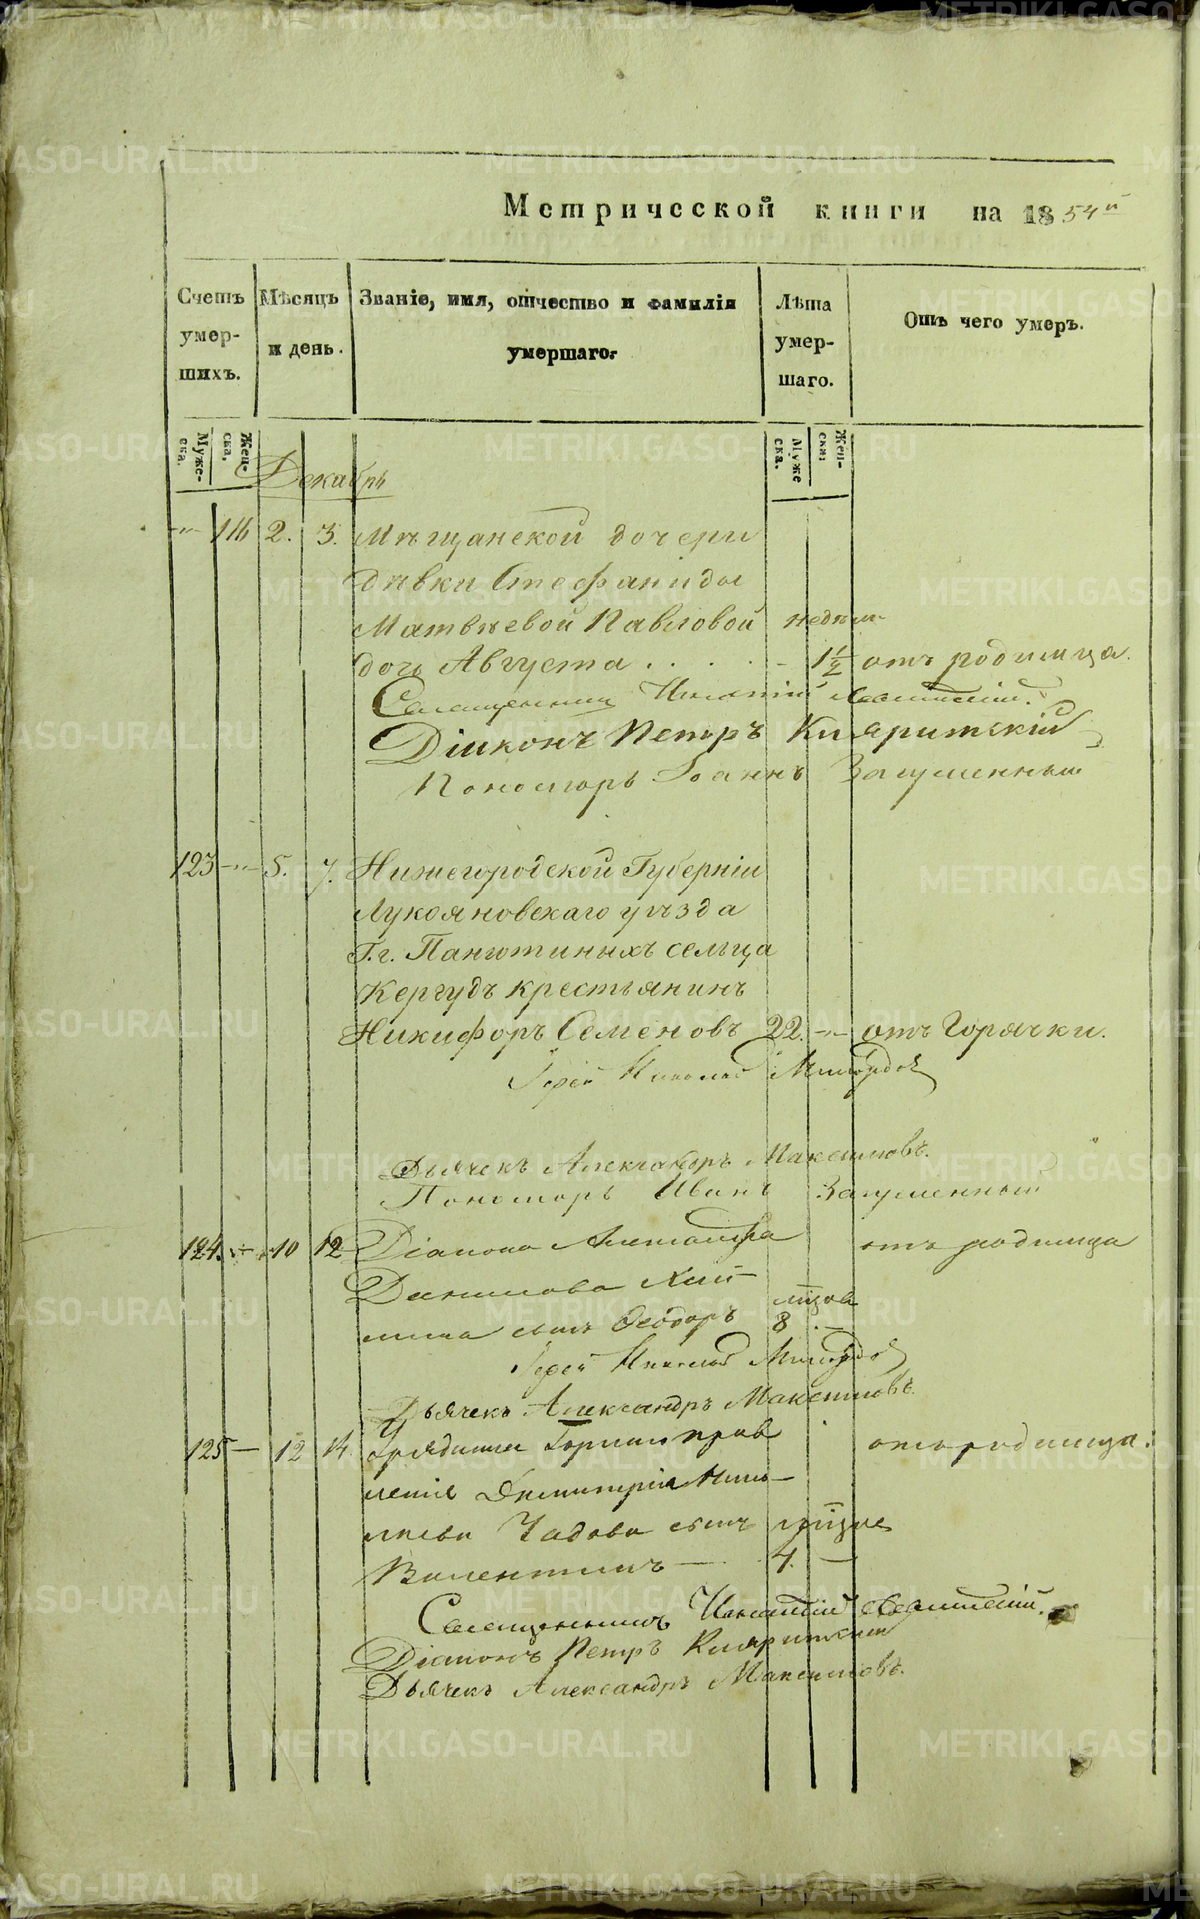 Метрической книги на 1854й
Счетъ умер-шихъ.
Мѣсяцъ и день.
Званіе, имя, отчество и фамилія умершаго.
Лѣта умер-шаго.
Отъ чего умеръ.
Муже-ска. Жен-ска.
Муже ска. Жен-ски:
Декабрь
-"- 116 2. 3. Мѣщанской дочери
Дѣвки Стефаниды
Матвѣевой Павловой недѣли
дочь Августа . . . . - 1½ отъ родимца.
Священникъ Игнатій
Діаконъ Петръ
Пономарь Іоаннъ Загуменный
123 -"- 5. 7. Нижегородской Губерніи
Лукояновскаго уѣзда
Г.г. Панютиныхъ сельца
Кергудъ крестьянинъ
Никифоръ Семеновъ 22. -"- отъ Горячки.
Іерей Николай
Дьячекъ Александръ Максимовъ.
Пономарь Иванъ Загуменный
124. -"- 10 12 Діакона Александра отъ родимца
Данилова
сынъ Ѳеодоръ 8
Іерей Николай
Дьячекъ Александръ Максимовъ.
125 — 12 14. Урядника Горнаго прав отъ родимца.
ленія Димитрія Нико-
лаева Чадова сынъ
Валентинъ — 4. —
Священникъ Игнатій
Діаконъ Петръ
Дьячекъ Александръ Максимовъ.
METRIKI.GASO-URAL.RU